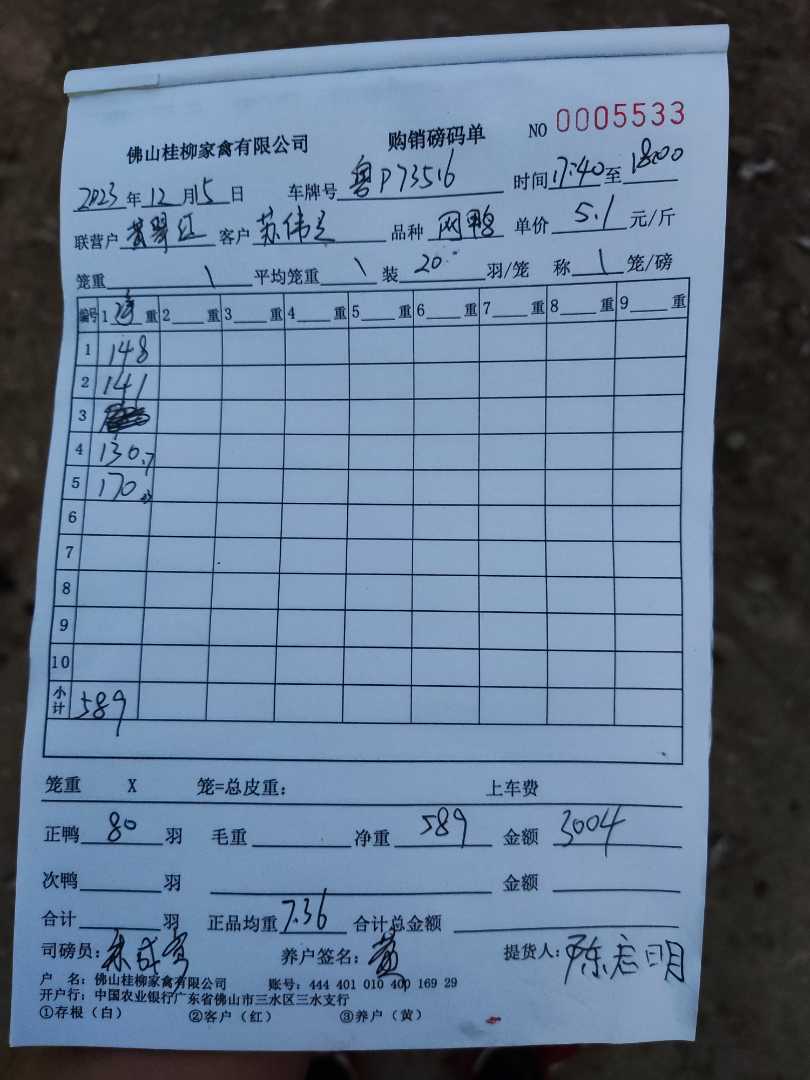 佛山桂柳家禽有限公司 购销磅码单 NO 0005533
2023年12月15日 车牌号 粤P73516 时间 17:40 至 18:00
联营户 黄翠红 客户 苏伟 品种 网鸭 单价 5.1 元/斤
笼重 \ 平均笼重 \ 装 20 羽/笼 称 1 笼/磅
编号 1 净 重 2 重 3 重 4 重 5 重 6 重 7 重 8 重 9 重
1 148
2 141
3
4 130.7
5 170
6
7
8
9
10
小计 589
笼重 X 笼=总皮重: 上车费
正鸭 80 羽 毛重 净重 589 金额 3004
次鸭 羽 金额
合计 羽 正品均重 7.36 合计总金额
司磅员: 养户签名: 黄 提货人: 陈启明
户 名: 佛山桂柳家禽有限公司 账号: 444 401 010 400 169 29
开户行: 中国农业银行广东省佛山市三水区三水支行
①存根(白) ②客户(红) ③养户(黄)